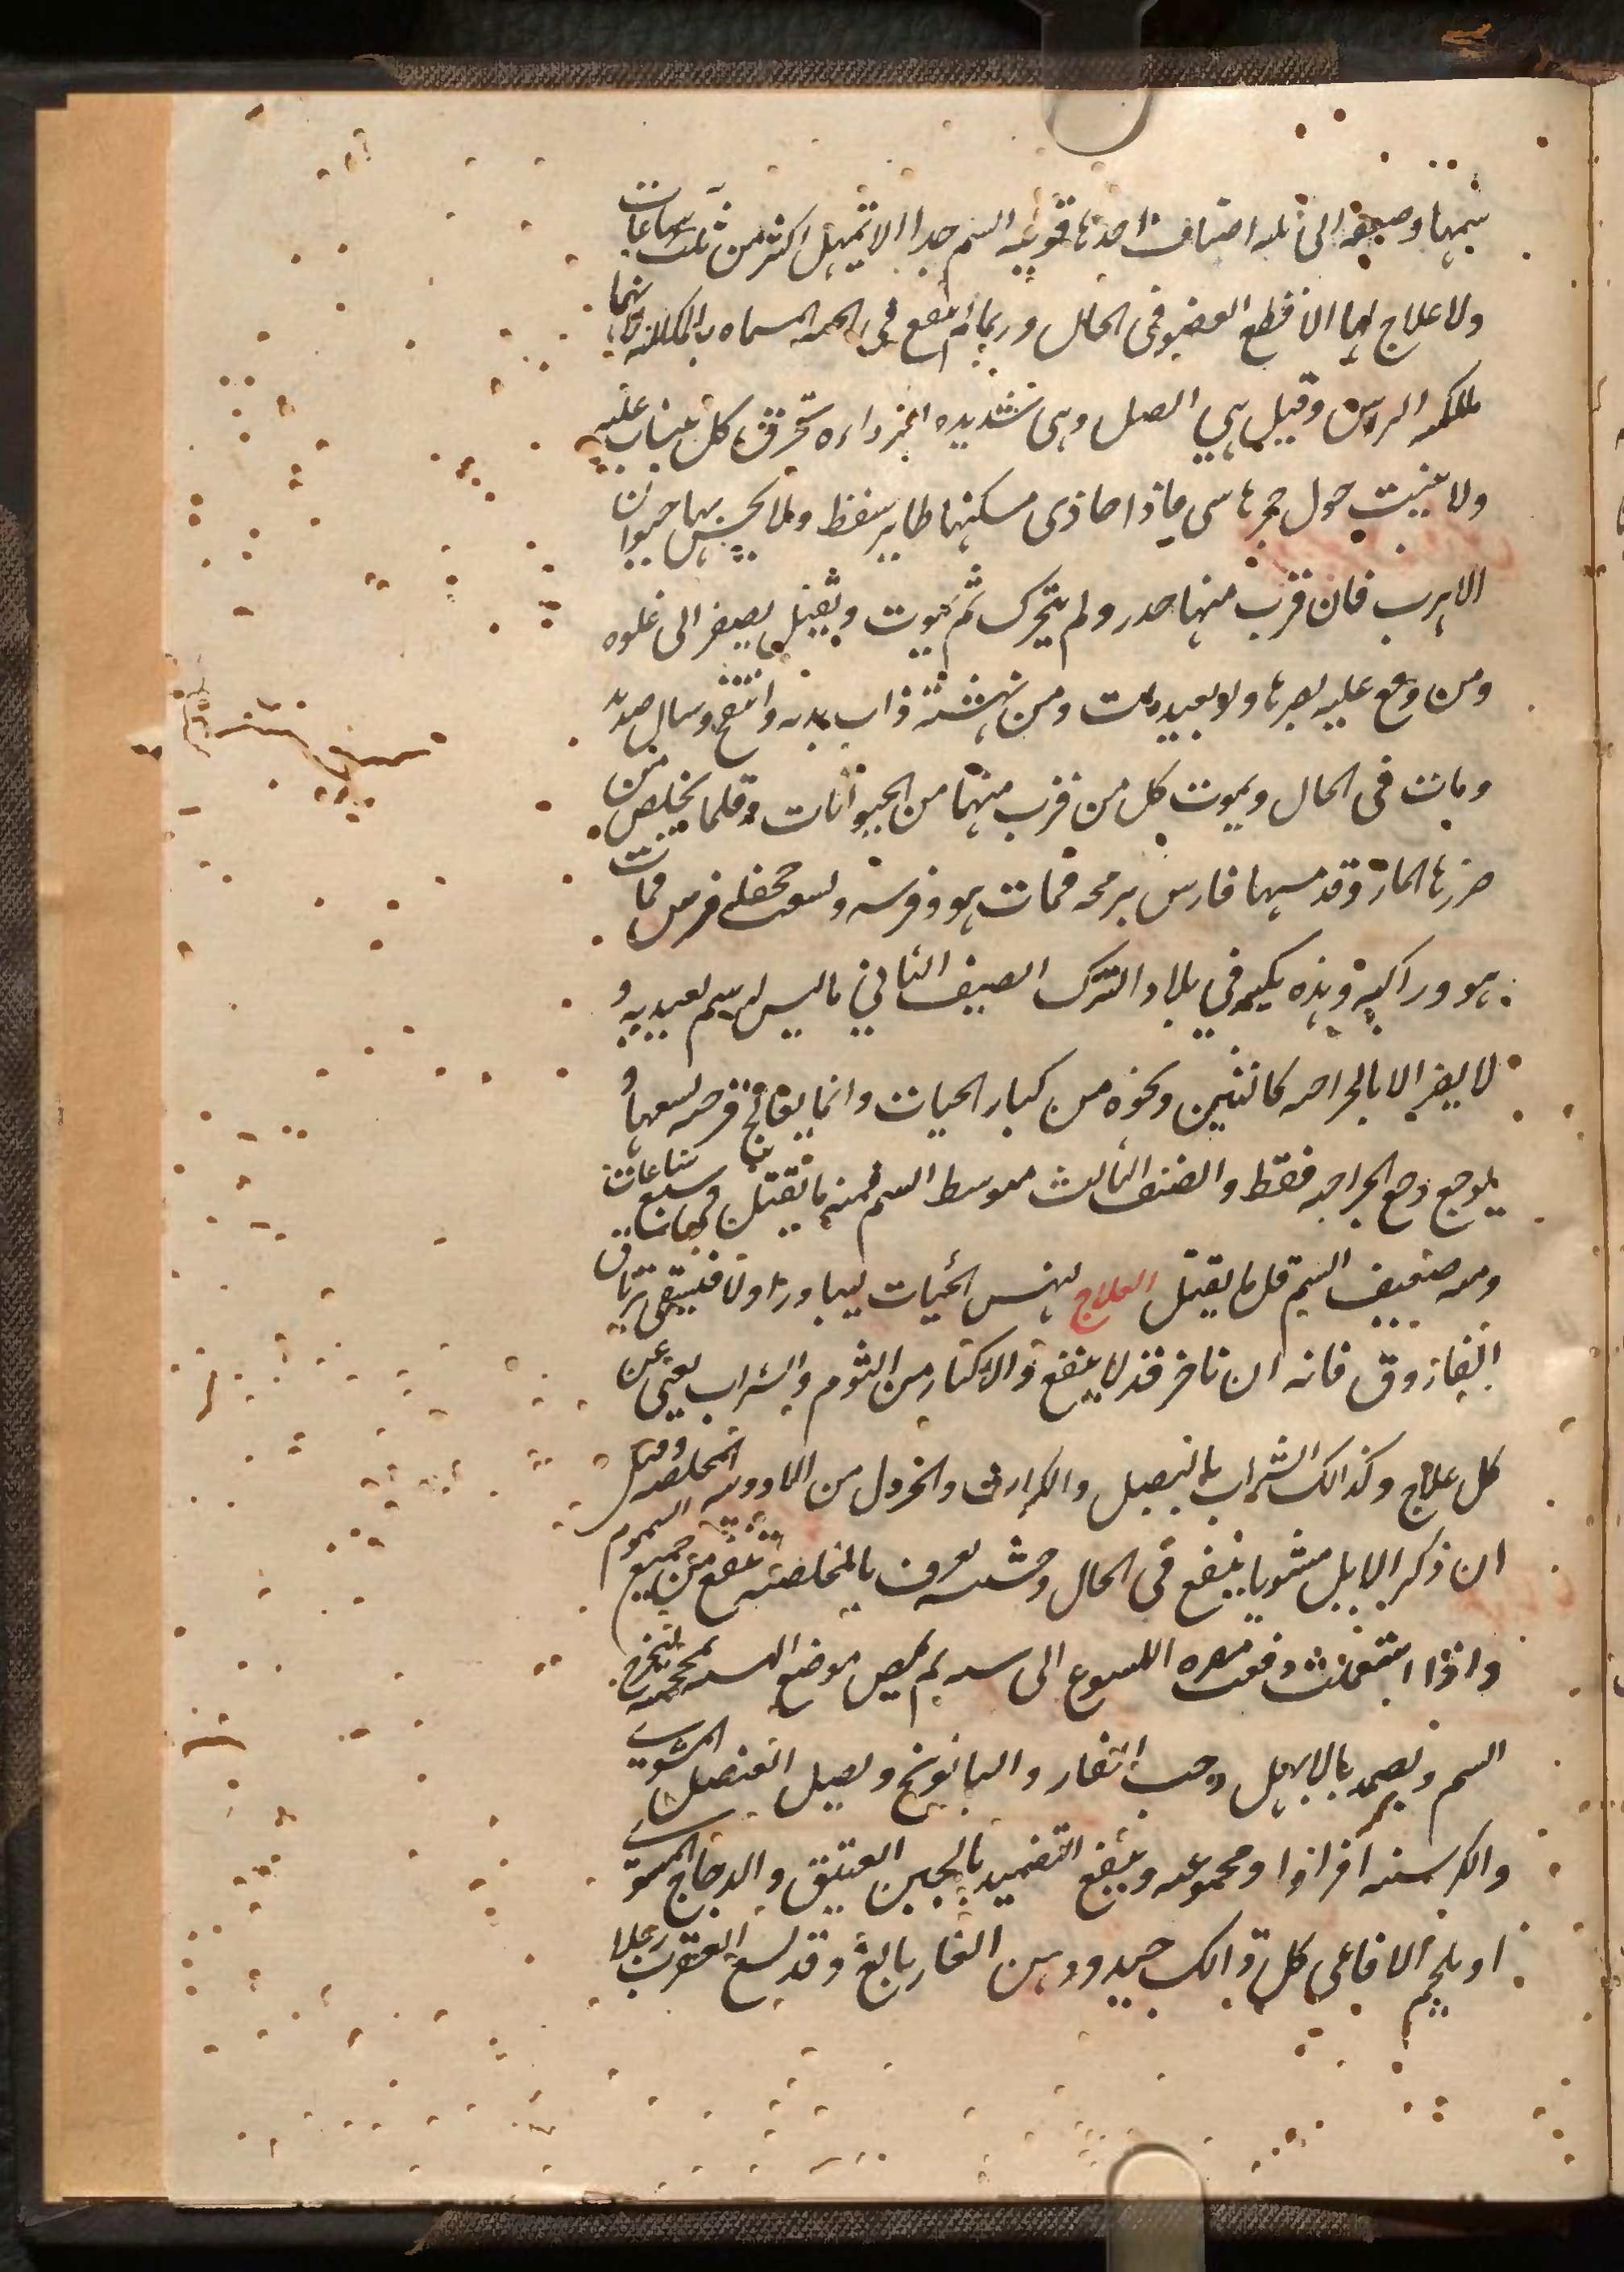 سمها وضعفه الى ثلثه اصناف احدها قويه السم جدا لا تمهل اكثر من ثلث ساعات
ولا علاج لها الا قطع العضو فى الحال وربما لم ينفع فى الحيه المسماه بالمكلله فانها
مكلله الراس وقيل هي الصل وهى شديده الحر داره تحرق كل ينساب عليه
ولا ينبت حول حجرها شى فاذا حاذى مسكنها طاير سقط ولا يحس بها حيوان
الا هرب فان قرب منها خدر ولم يتحرك ثم يموت ويقتل بصفر الى غلوه
ومن وقع عليه بصرها ولو بعيد مات ومن نهشته ذاب بدنه وانتفخ وسال صديد
ومات فى الحال ويموت كل من قرب منها من الحيوانات وقلما يخلص من
ضررها المار وقد مسها فارس برمحه فمات هو وفرسه ولسعت جحفله فرس فمات
هو وراكبه وهذه يكثر في بلاد الترك الصنف الثاني ما ليس له سم يعتد به و
لا يضر الا بالجراحه كالتنين ونحوه من كبار الحيات وانما يعالج قرحه لسعها و
يوجع وجع الجراحه فقط والصنف الثالث متوسط السم فمنه ما يقتل فى سبع ساعات
ومنه ضعيف السم قل ما يقتل العلاج لنهس الحيات ليبادر اولا فيسقى ترياق
الفاروق فانه ان تاخر قد لا ينفع والاكثار من الثوم والشراب يغنى عن
كل علاج وكذلك الشراب بالبصل والكراث والخردل من الادويه المخلصه وقيل
ان ذكر الابل مشويا ينفع فى الحال وحشيشه تعرف بالمخلصه تنفع من جميع السموم
واذا استعملت دفعت مضره اللسوع الى سنه ثم يمص موضع اللسعه بمحجمه ليخرج
السم ويضمد بالابهل وحب الغار والبابونج وبصل العنصل المشوي
والكرسنه افرادا ومجموعه وينفع التضميد بالجبن العتيق والدجاج المشوي
او بلحم الافاعى كل ذالك جيد ودهن الغار بالغ وقد لسع العقرب رجلا